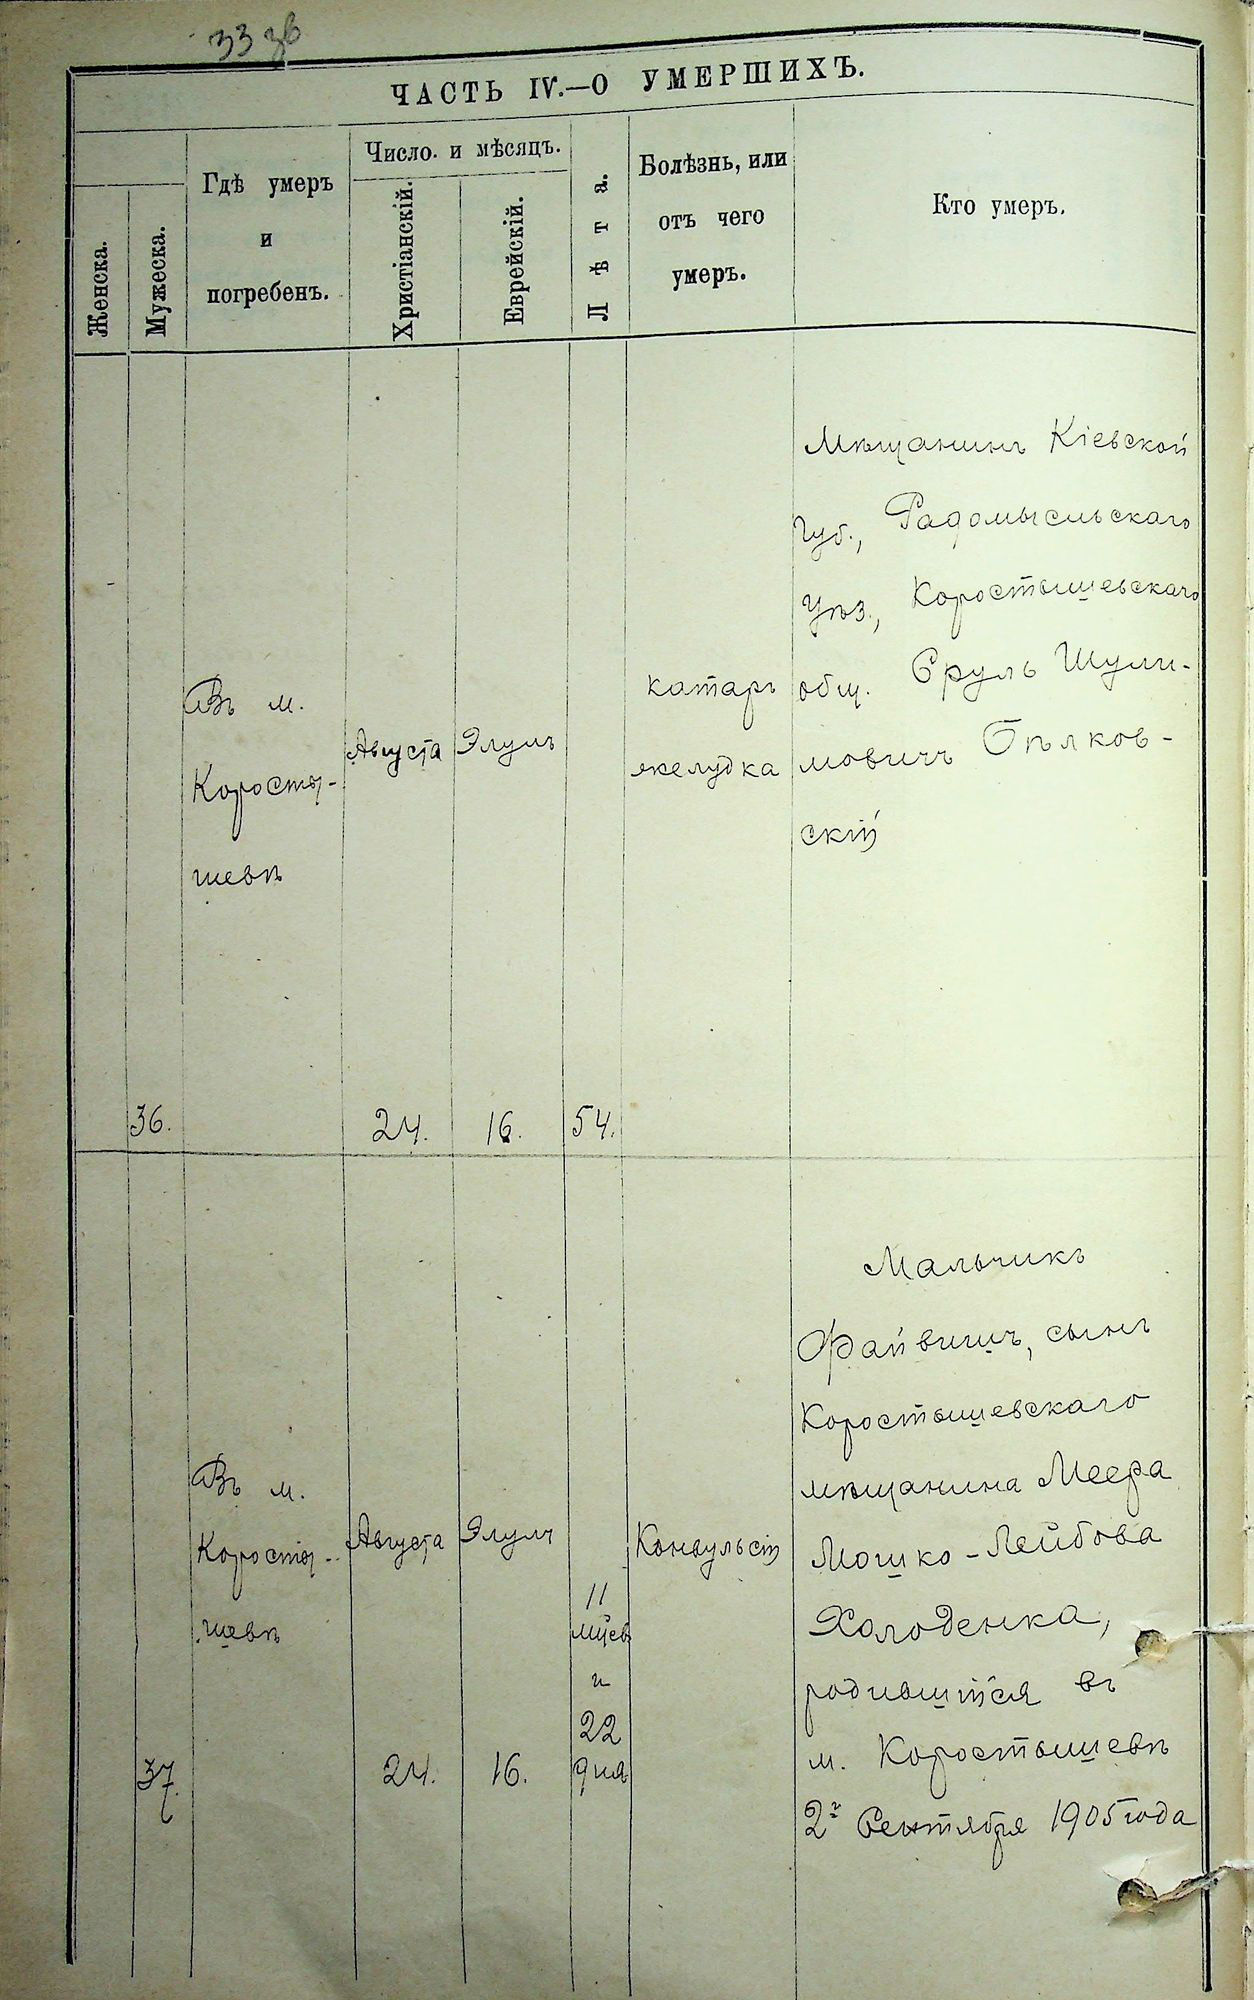 33 зв
ЧАСТЬ IV.—О УМЕРШИХЪ.
Женска.
Мужеска.
Гдѣ умеръ
и
погребенъ.
Число. и мѣсяцъ.
Христіанскій.
Еврейскій.
Лѣта.
Болѣзнь, или
отъ чего
умеръ.
Кто умеръ.
36.
Въ м.
Коросты-
шевѣ
Августа
24.
Элулъ
16.
54.
катаръ
желудка
Мѣщанинъ Кіевской
Губ., Радомысльскаго
Уѣз., Коростышевскаго
общ. Сруль Шули-
мовичъ Бѣлков-
скій
37.
Въ м.
Коросты-
шевѣ
Августа
24.
Элулъ
16.
11
мцев
и
22
дня
Конвульсіи
Мальчикъ
Файвишъ, сынъ
Коростышевскаго
мѣщанина Меера
Мошко-Лейбова
Холоденка,
родившійся въ
м. Коростышевѣ
2г Сентября 1905 года